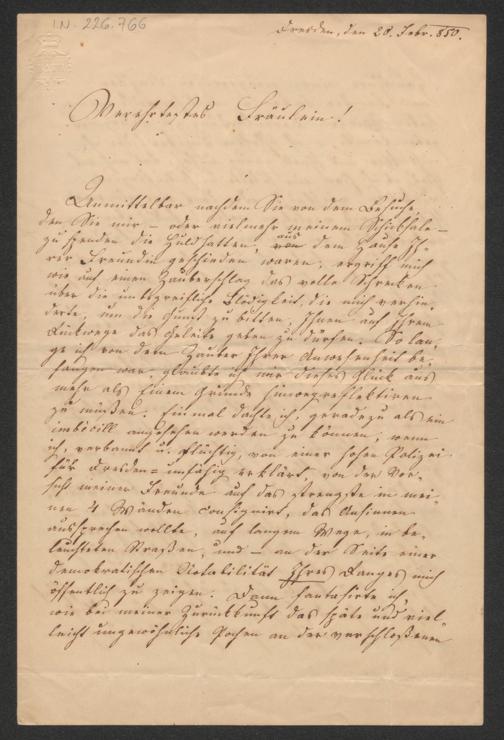 I.N. 226.766
Dresden, den 28. Febr. 850.
Verehrtestes Fräulein!
Unmittelbar nachdem Sie von dem Besuche,
den Sie mir – oder vielmehr meinem Schicksale –
zu spenden die Huld hatten, aus dem Hause Ih-
rer Freundin geschieden waren, ergriff mich
wie auf einen Zauberschlag das volle Schrecken
über die unbegreifliche Blödigkeit, die mich verhin-
derte, um die Gunst zu bitten, Ihnen auf Ihrem
Rückwege das Geleite geben zu dürfen. So lan-
ge ich von dem Zauber Ihrer Anwesenheit be-
fangen war, glaubte ich mir dieses Glück aus
mehr als Einem Grunde hinwegreflektiren
zu müssen. Einmal dachte ich, geradezu als ein
imbécill angesehen werden zu können, wenn
ich, verbannt u. flüchtig, von einer hohen Polizei
für Dresden-unfähig erklärt, von der Vor-
sicht meiner Freunde auf das strengste in mei-
nen 4 Wänden consignirt, das Ansinnen
aussprechen wollte, auf langem Wege, in be-
leuchteten Straßen, und – an der Seite einer
demokratischen Notabilität Ihres Ranges mich
öffentlich zu zeigen. Dann fantasirte ich,
wie bei meiner Zurückkunft das späte und viel-
leicht ungewöhnliche Pochen an der verschloßenen